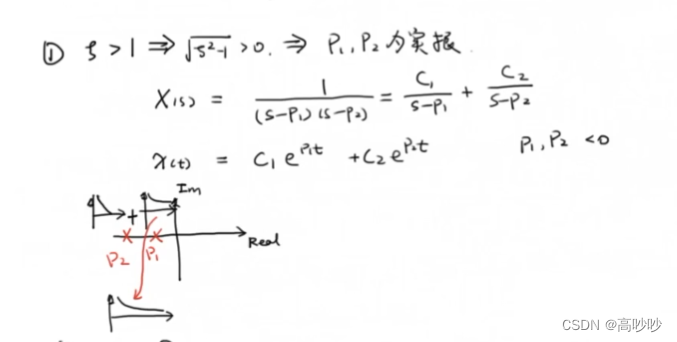 ① ξ > 1 ⇒ √ξ²-1 > 0. ⇒ P₁, P₂ 为实根.
X(s) = 1/((s-P₁)(s-P₂)) = C₁/(s-P₁) + C₂/(s-P₂)
x(t) = C₁ e^{P₁t} + C₂ e^{P₂t} P₁, P₂ < 0
Im
+
Real
P₂ P₁
CSDN @高吵吵